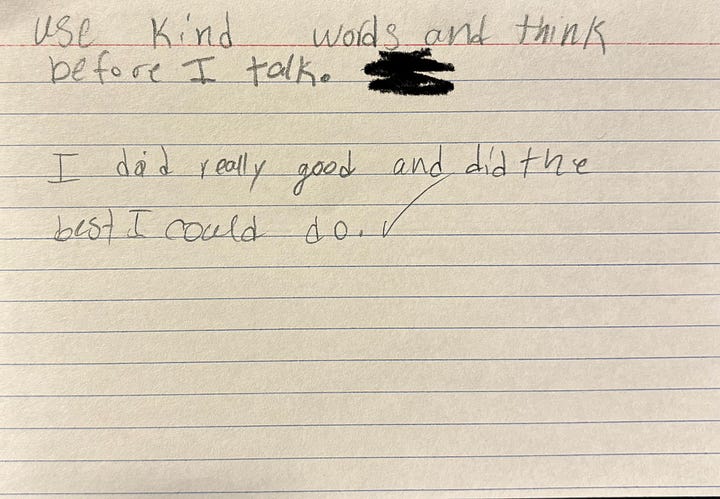 use kind words and think
before I talk.
I did really good and did the
best I could do. ✓